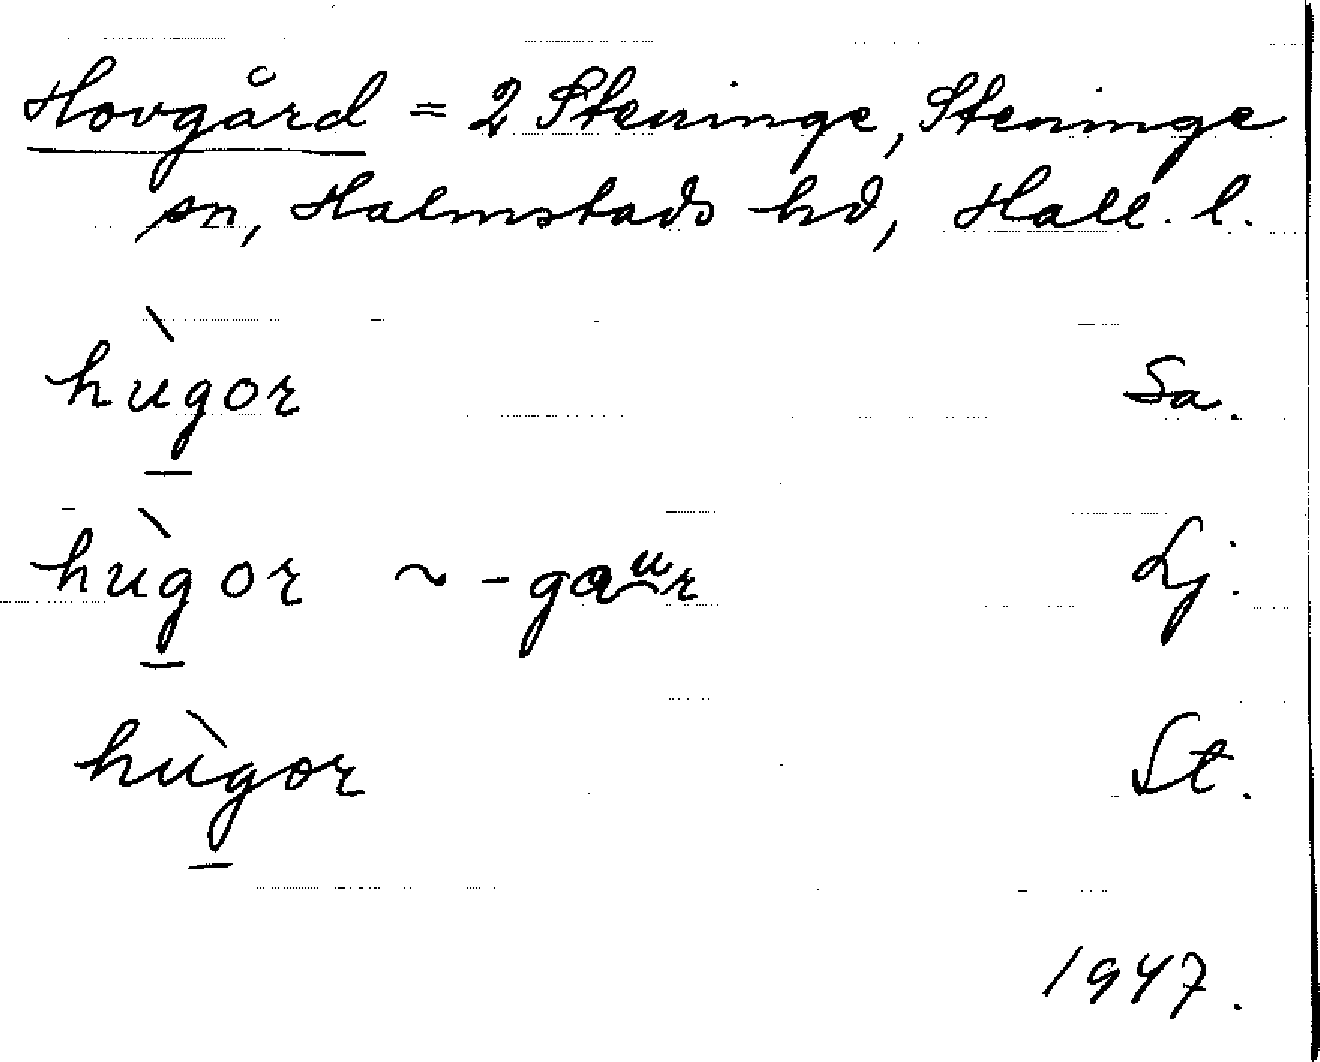 Hovgård = 2 Steninge, Steninge
sn, Halmstads hd, Hall. l.
hùgor Sa.
hùgor ~ -gaᵘr Lj.
hùgor St.
1947.